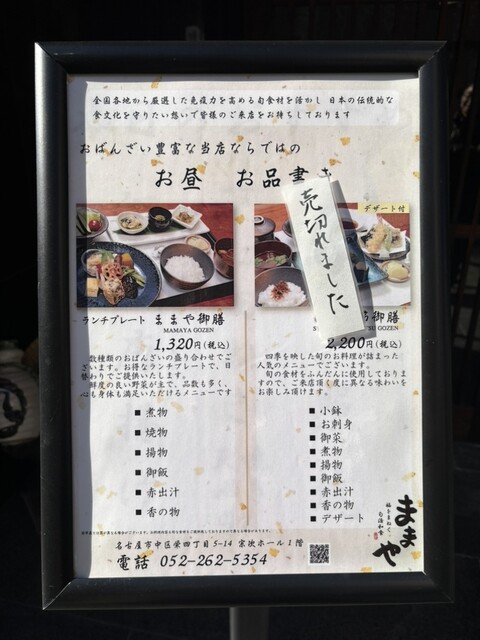 全国各地から厳選した免疫力を高める旬食材を活かし 日本の伝統的な
食文化を守りたい想いで皆様のご来店をお待ちしております
おばんざい豊富な当店ならではの
お昼 お品書き
売切れました
デザート付
ランチプレート ままや御膳
MAMAYA GOZEN
1,320円(税込)
数種類のおばんざいの盛り合わせでご
ざいます。お得なランチプレートで、日
替わりでご提供いたします。
鮮度の良い野菜が主で、品数も多く、
心も身体も満足いただけるメニューです
■ 煮物
■ 焼物
■ 揚物
■ 御飯
■ 赤出汁
■ 香の物
御膳
GOZEN
2,200円(税込)
四季を映した旬のお料理が詰まった
人気のメニューでございます。
旬の食材をふんだんに使用しておりま
すので、ご来店頂く度に異なる味わいを
お楽しみ頂けます。
■ 小鉢
■ お刺身
■ 御菜
■ 煮物
■ 揚物
■ 御飯
■ 赤出汁
■ 香の物
■ デザート
ままや
名古屋市中区栄四丁目5-14 宗次ホール1階
電話 052-262-5354